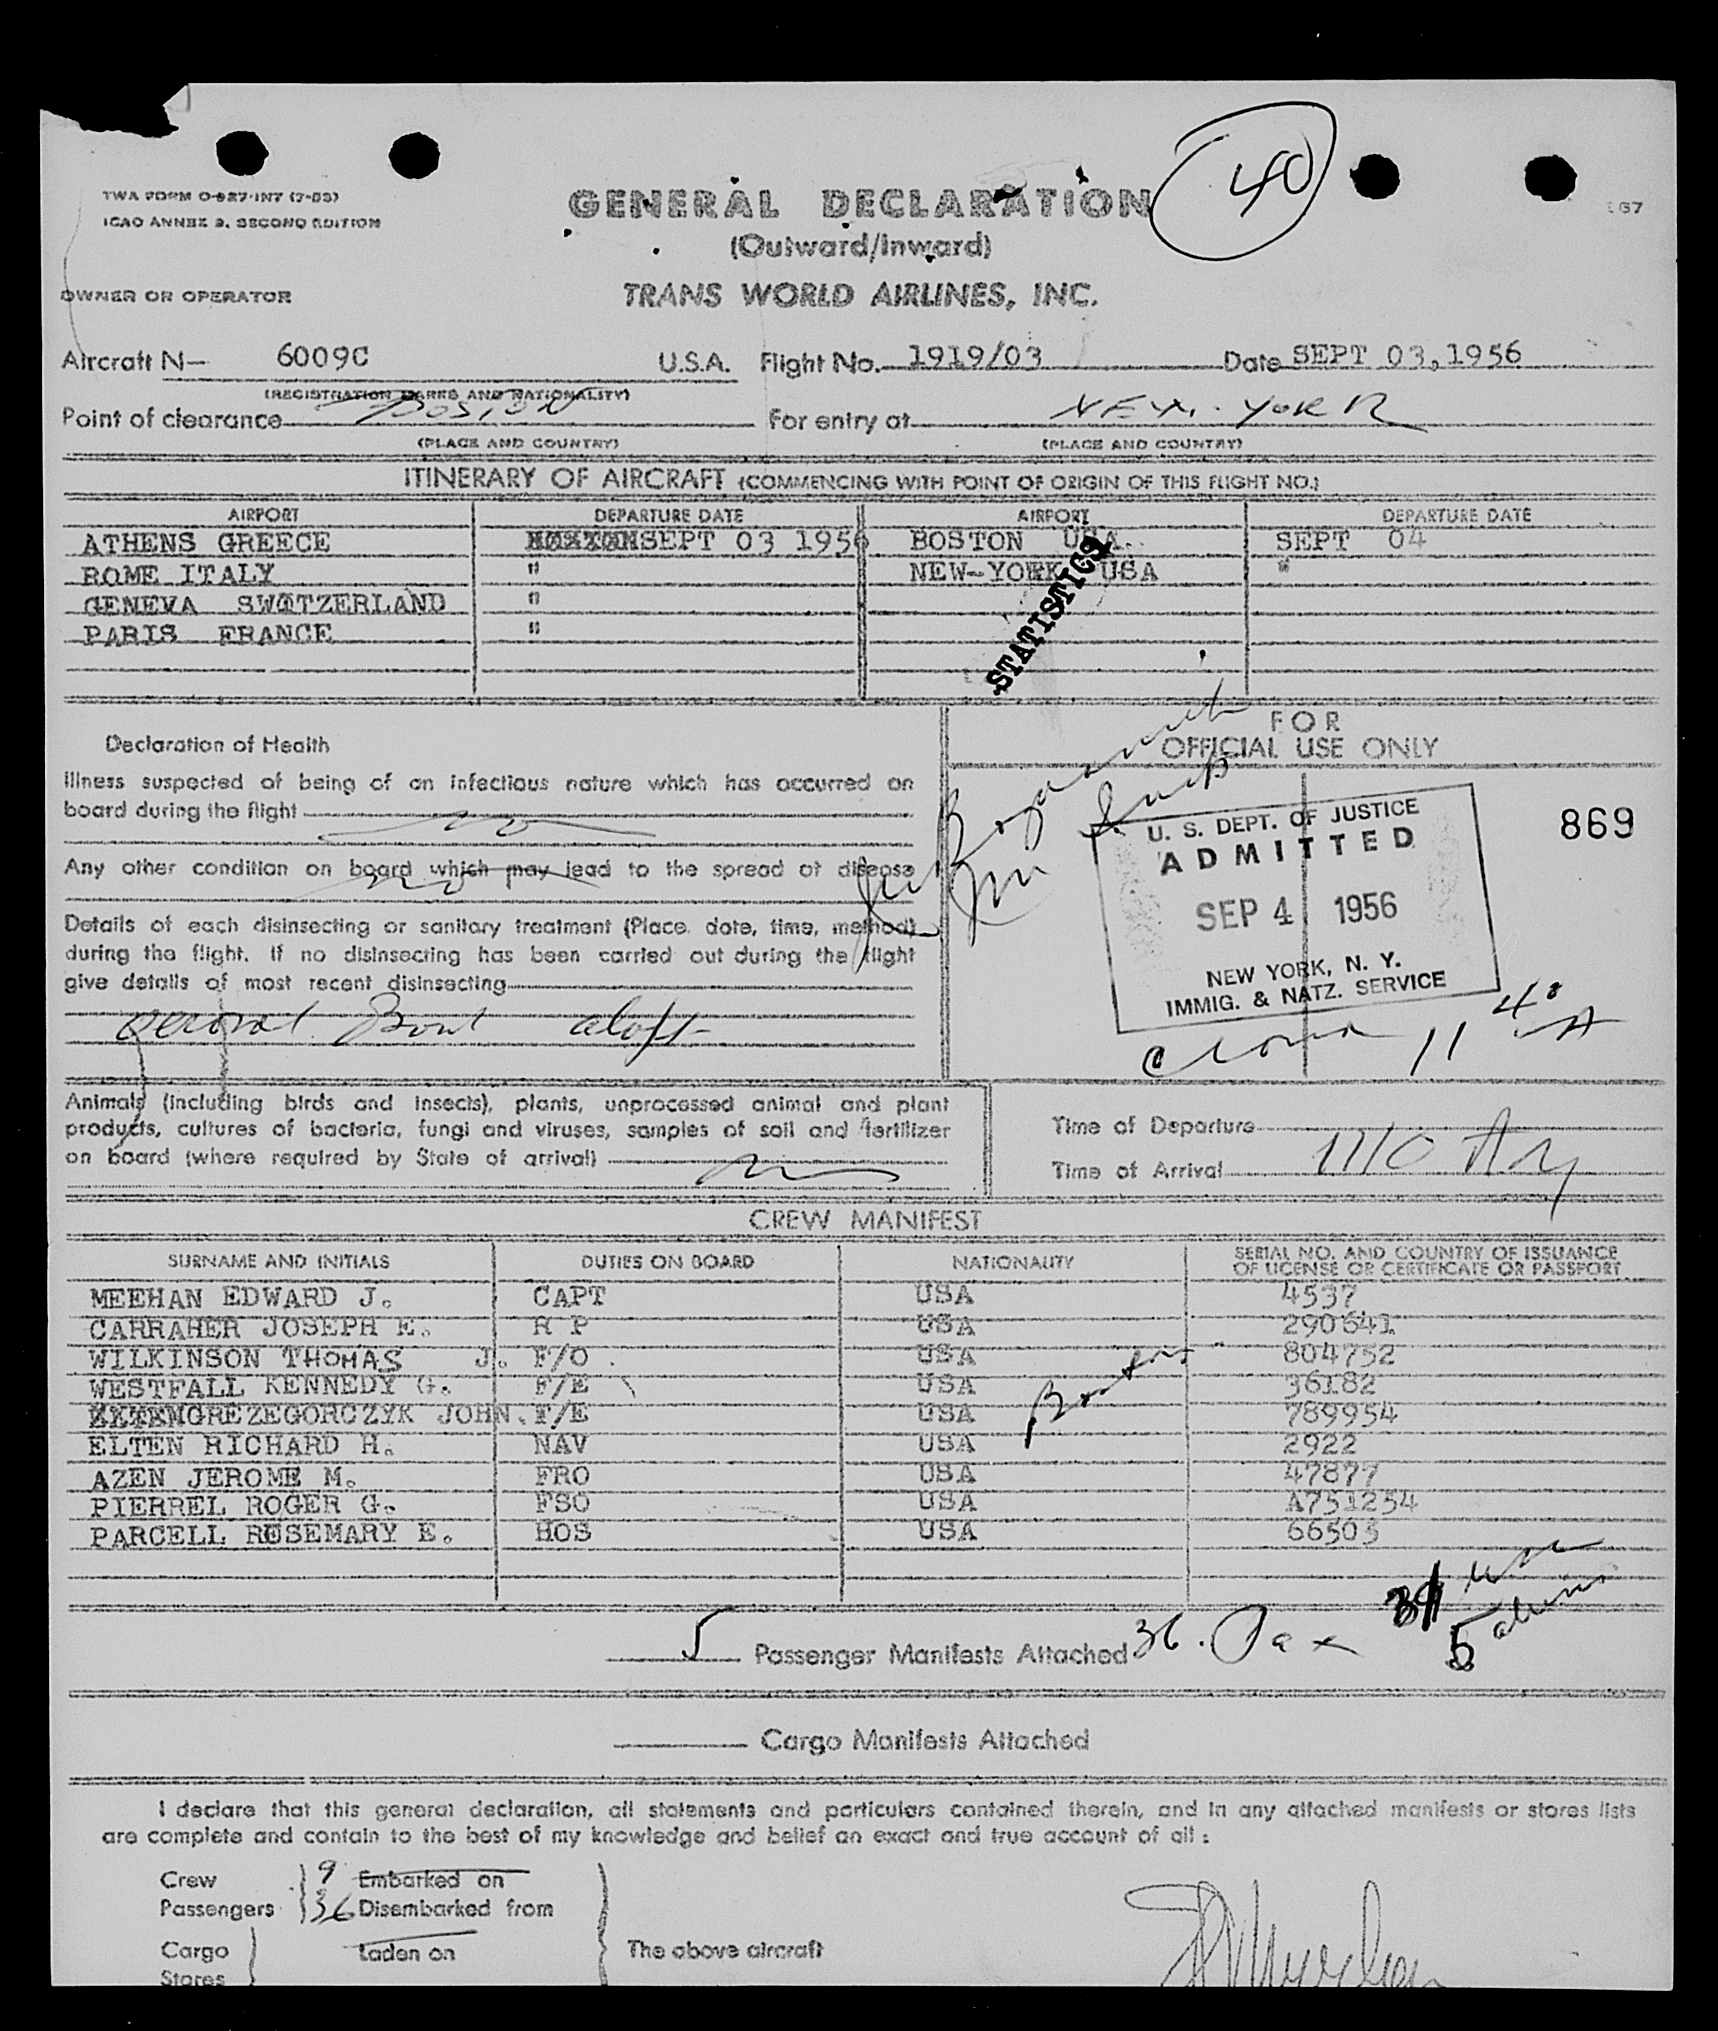 40
TWA FORM O-927-INT (7-53)
ICAO ANNEX 9, SECOND EDITION
GENERAL DECLARATION
(Outward/Inward)
OWNER OR OPERATOR
TRANS WORLD AIRLINES, INC.
Aircraft N— 6009C U.S.A. Flight No. 1919/03 Date SEPT 03,1956
(REGISTRATION MARKS AND NATIONALITY)
Point of clearance BOSTON For entry at NEW YORK
(PLACE AND COUNTRY) (PLACE AND COUNTRY)
ITINERARY OF AIRCRAFT (COMMENCING WITH POINT OF ORIGIN OF THIS FLIGHT NO.)
AIRPORT DEPARTURE DATE AIRPORT DEPARTURE DATE
ATHENS GREECE SEPT 03 1956 BOSTON USA. SEPT 04
ROME ITALY " NEW-YORK USA "
GENEVA SWITZERLAND "
PARIS FRANCE "
STATISTICS
Declaration of Health
Illness suspected of being of an infectious nature which has occurred on
board during the flight no
Any other condition on board which may lead to the spread of disease
no
Details of each disinsecting or sanitary treatment (Place, date, time, method)
during the flight. If no disinsecting has been carried out during the flight
give details of most recent disinsecting
aerosol Bomb aloft
FOR
OFFICIAL USE ONLY
U. S. DEPT. OF JUSTICE
ADMITTED
SEP 4 1956
NEW YORK, N. Y.
IMMIG. & NATZ. SERVICE
869
11 40 A
Animals (including birds and insects), plants, unprocessed animal and plant
products, cultures of bacteria, fungi and viruses, samples of soil and fertilizer
on board (where required by State of arrival)
Time of Departure
Time of Arrival 1110 Am
CREW MANIFEST
SURNAME AND INITIALS DUTIES ON BOARD NATIONALITY SERIAL NO. AND COUNTRY OF ISSUANCE
OF LICENSE OR CERTIFICATE OR PASSPORT
MEEHAN EDWARD J. CAPT USA 4537
CARRAHER JOSEPH E. R P USA 290641
WILKINSON THOMAS J. F/O USA 804752
WESTFALL KENNEDY G. F/E USA 36182
GREZEGORCZYK JOHN. F/E USA 789954
ELTEN RICHARD H. NAV USA 2922
AZEN JEROME M. FRO USA 47877
PIERREL ROGER G. FSO USA A751254
PARCELL ROSEMARY E. HOS USA 66503
5 Passenger Manifests Attached 36. Pax
5 aliens
Cargo Manifests Attached
I declare that this general declaration, all statements and particulars contained therein, and in any attached manifests or stores lists
are complete and contain to the best of my knowledge and belief an exact and true account of all :
Crew 9 Embarked on
Passengers 36 Disembarked from
Cargo Laden on The above aircraft
Stores